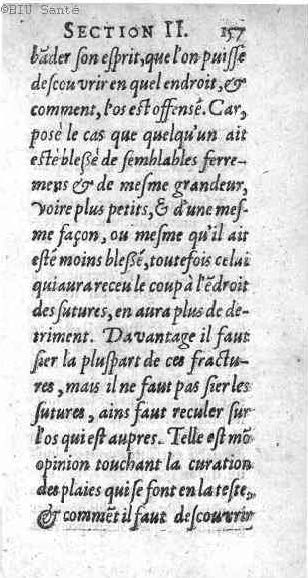 ©BIU Santé
SECTION II. 157
bãder son esprit, que l'on puisse
descouvrir en quel endroit, &
comment, l'os est offensé. Car,
posé le cas que quelqu'un ait
esté blessé de semblables ferre-
mens & de mesme grandeur,
voire plus petits, & d'une mes-
me façon, ou mesme qu'il ait
esté moins blessé, toutefois celui
qui aura receu le coup à l'ẽdroit
des sutures, en aura plus de de-
triment. Davantage il faut
sier la pluspart de ces fractu-
res, mais il ne faut pas sier les
sutures, ains faut reculer sur
l'os qui est aupres. Telle est mõ
opinion touchant la curation
des plaies qui se font en la teste,
& commẽt il faut descouvrir